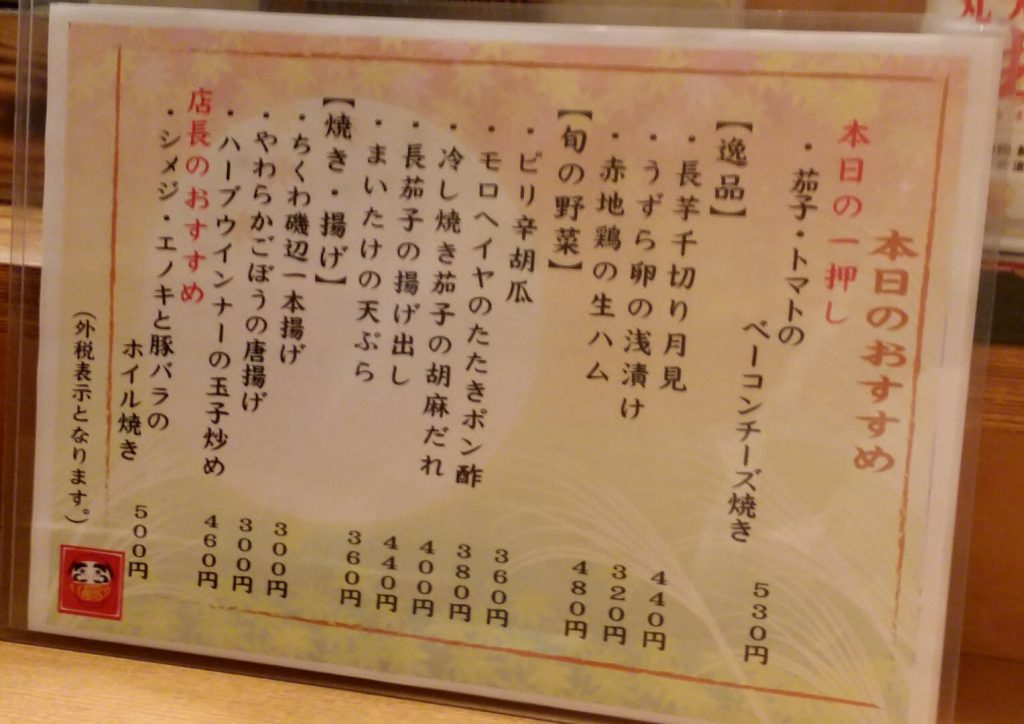 本日のおすすめ
本日の一押し
・茄子・トマトの
ベーコンチーズ焼き 530円
【逸品】
・長芋千切り月見 440円
・うずら卵の浅漬け 320円
・赤地鶏の生ハム 480円
【旬の野菜】
・ピリ辛胡瓜 360円
・モロヘイヤのたたきポン酢 380円
・冷し焼き茄子の胡麻だれ 400円
・長茄子の揚げ出し 440円
・まいたけの天ぷら 360円
【焼き・揚げ】
・ちくわ磯辺一本揚げ 300円
・やわらかごぼうの唐揚げ 300円
・ハーブウインナーの玉子炒め 460円
店長のおすすめ
・シメジ・エノキと豚バラの
ホイル焼き 500円
(外税表示となります。)